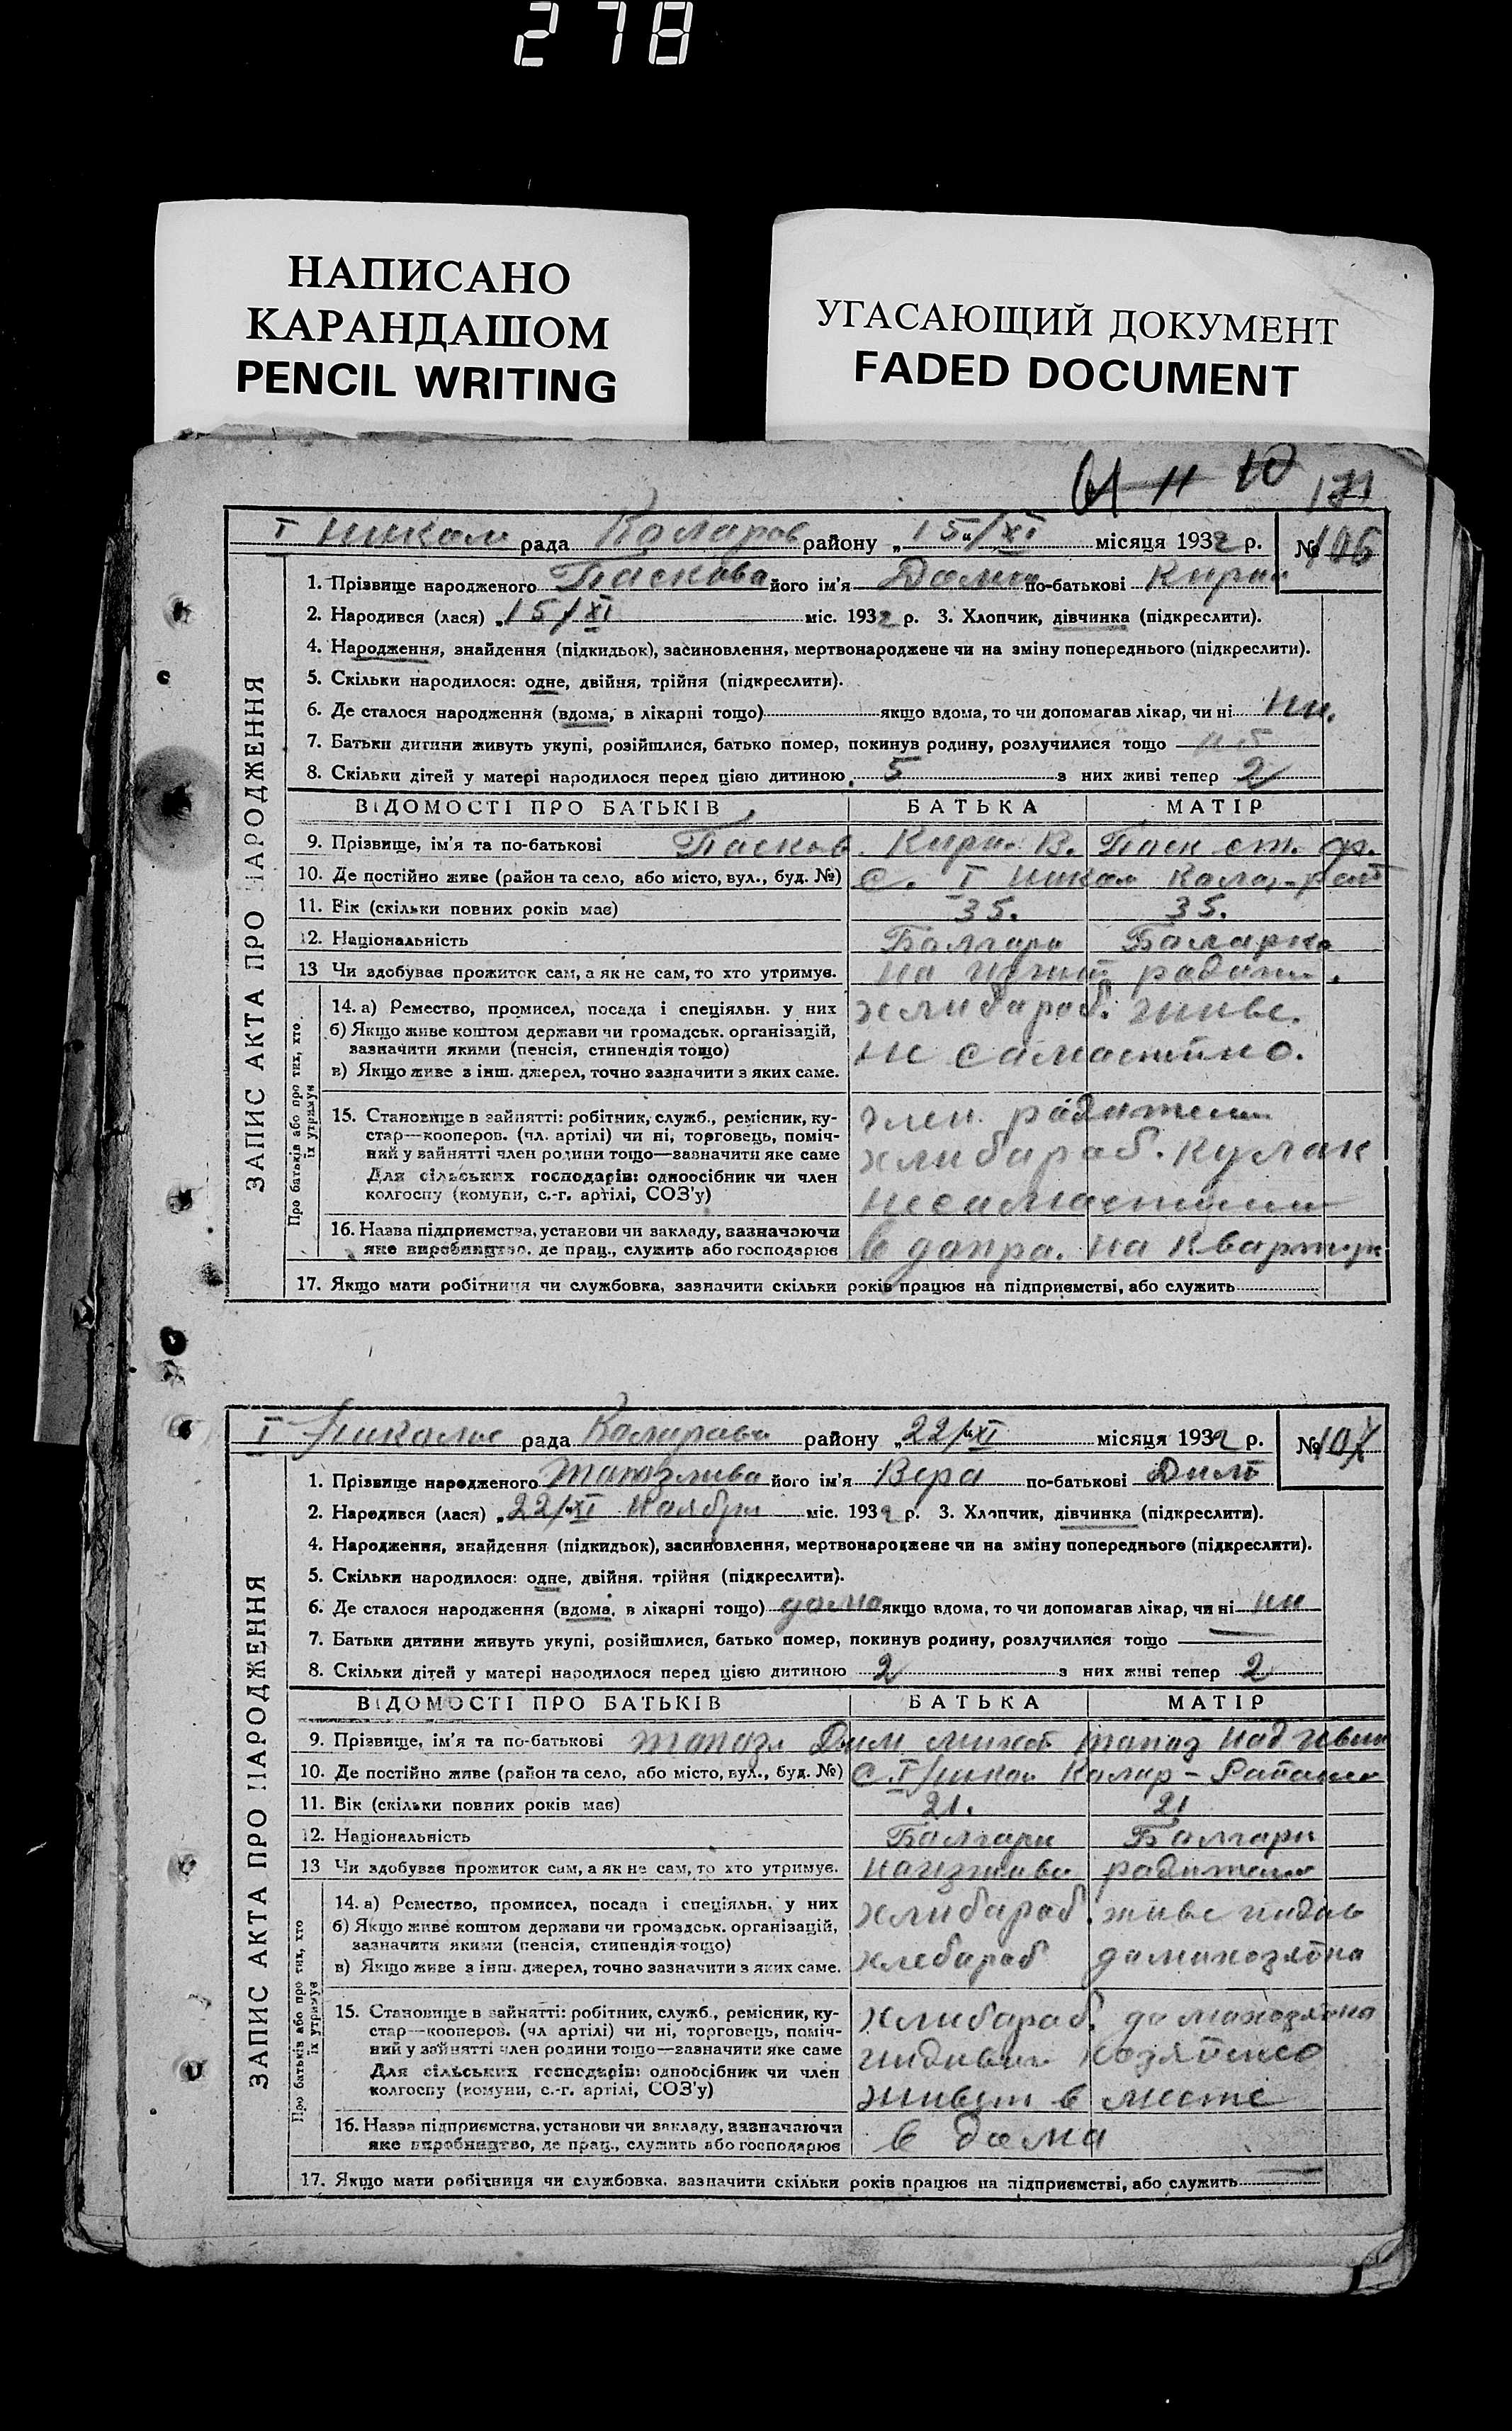 278
НАПИСАНО
КАРАНДАШОМ
PENCIL WRITING
УГАСАЮЩИЙ ДОКУМЕНТ
FADED DOCUMENT
11 10
ЗАПИС АКТА ПРО НАРОДЖЕННЯ
I Никол рада Коларов районy „15/XI місяця 1932 р. № 106
1. Прізвище народженого Паскова його ім'я по-батькові Кирил
2. Народився (лася) „15/XI міс. 1932 р. 3. Хлопчик, дівчинка (підкреслити).
4. Народження, знайдення (підкидьок), засиновлення, мертвонароджене чи на зміну попереднього (підкреслити).
5. Скільки народилося: одне, двійня, трійня (підкреслити).
6. Де сталося народження (вдома, в лікарні тощо) якщо вдома, то чи допомагав лікар, чи ні ни.
7. Батьки дитини живуть укупі, розійшлися, батько помер, покинув родину, розлучилися тощо
8. Скільки дітей у матері народилося перед цією дитиною 5 з них живі тепер 2
ВІДОМОСТІ ПРО БАТЬКІВ БАТЬКА МАТІР
9. Прізвище, ім'я та по-батькові Пасков Кири. В. Паск ст.
10. Де постійно живе (район та село, або місто, вул., буд. №) С. I Никол Колар-
11. Вік (скільки повних років має) 35. 35.
12. Національність Болгари Боларка
13 Чи здобуває прожиток сам, а як не сам, то хто утримує. на
Про батьків або про тих, хто їх утримує
14. а) Ремество, промисел, посада і спеціяльн. у них хлибароб. живе.
б) Якщо живе коштом держави чи громадськ. організацій,
зазначити якими (пенсія, стипендія тощо) не самастийно.
в) Якщо живе з інш. джерел, точно зазначити з яких саме.
15. Становище в зайнятті: робітник, служб., ремісник, ку- член. родители
стар—кооперов. (чл. артілі) чи ні, торговець, поміч-
ний у зайнятті член родини тощо—зазначити яке саме хлибароб. кулак
Для сільських господарів: одноосібник чи член
колгоспу (комуни, с.-г. артілі, СОЗ'у)
16. Назва підприємства, установи чи закладу, зазначаючи
яке виробництво, де прац., служить або господарює в допра. на
17. Якщо мати робітниця чи службовка, зазначити скільки років працює на підприємстві, або служить
ЗАПИС АКТА ПРО НАРОДЖЕННЯ
I Николае рада Коларави району „22/XI місяця 1932 р. № 107
1. Прізвище народженого його ім'я Вера по-батькові Дим
2. Народився (лася) „22/XI Наябри міс. 1932 р. 3. Хлопчик, дівчинка (підкреслити).
4. Народження, знайдення (підкидьок), засиновлення, мертвонароджене чи на зміну попереднього (підкреслити).
5. Скільки народилося: одне, двійня, трійня (підкреслити).
6. Де сталося народження (вдома, в лікарні тощо) дома якщо вдома, то чи допомагав лікар, чи ні ни
7. Батьки дитини живуть укупі, розійшлися, батько помер, покинув родину, розлучилися тощо
8. Скільки дітей у матері народилося перед цією дитиною 2 з них живі тепер 2
ВІДОМОСТІ ПРО БАТЬКІВ БАТЬКА МАТІР
9. Прізвище, ім'я та по-батькові Топазл Дим топаз
10. Де постійно живе (район та село, або місто, вул., буд. №) С I Никол Колар -
11. Вік (скільки повних років має) 21. 21
12. Національність Болгари Болгари
13 Чи здобуває прожиток сам, а як не сам, то хто утримує. родители
Про батьків або про тих, хто їх утримує
14. а) Ремество, промисел, посада і спеціяльн. у них хлибароб. живе
б) Якщо живе коштом держави чи громадськ. організацій,
зазначити якими (пенсія, стипендія тощо)
в) Якщо живе з інш. джерел, точно зазначити з яких саме. хлебароб дамахозяйка
15. Становище в зайнятті: робітник, служб., ремісник, ку- хлибароб. домахозяйка
стар—кооперов. (чл артілі) чи ні, торговець, поміч-
ний у зайнятті член родини тощо—зазначити яке саме
Для сільських господарів: одноосібник чи член
колгоспу (комуни, с.-г. артілі, СОЗ'у) живут в месте
16. Назва підприємства, установи чи закладу, зазначаючи
яке виробництво, де прац., служить або господарює в дома
17. Якщо мати робітниця чи службовка, зазначити скільки років працює на підприємстві, або служить